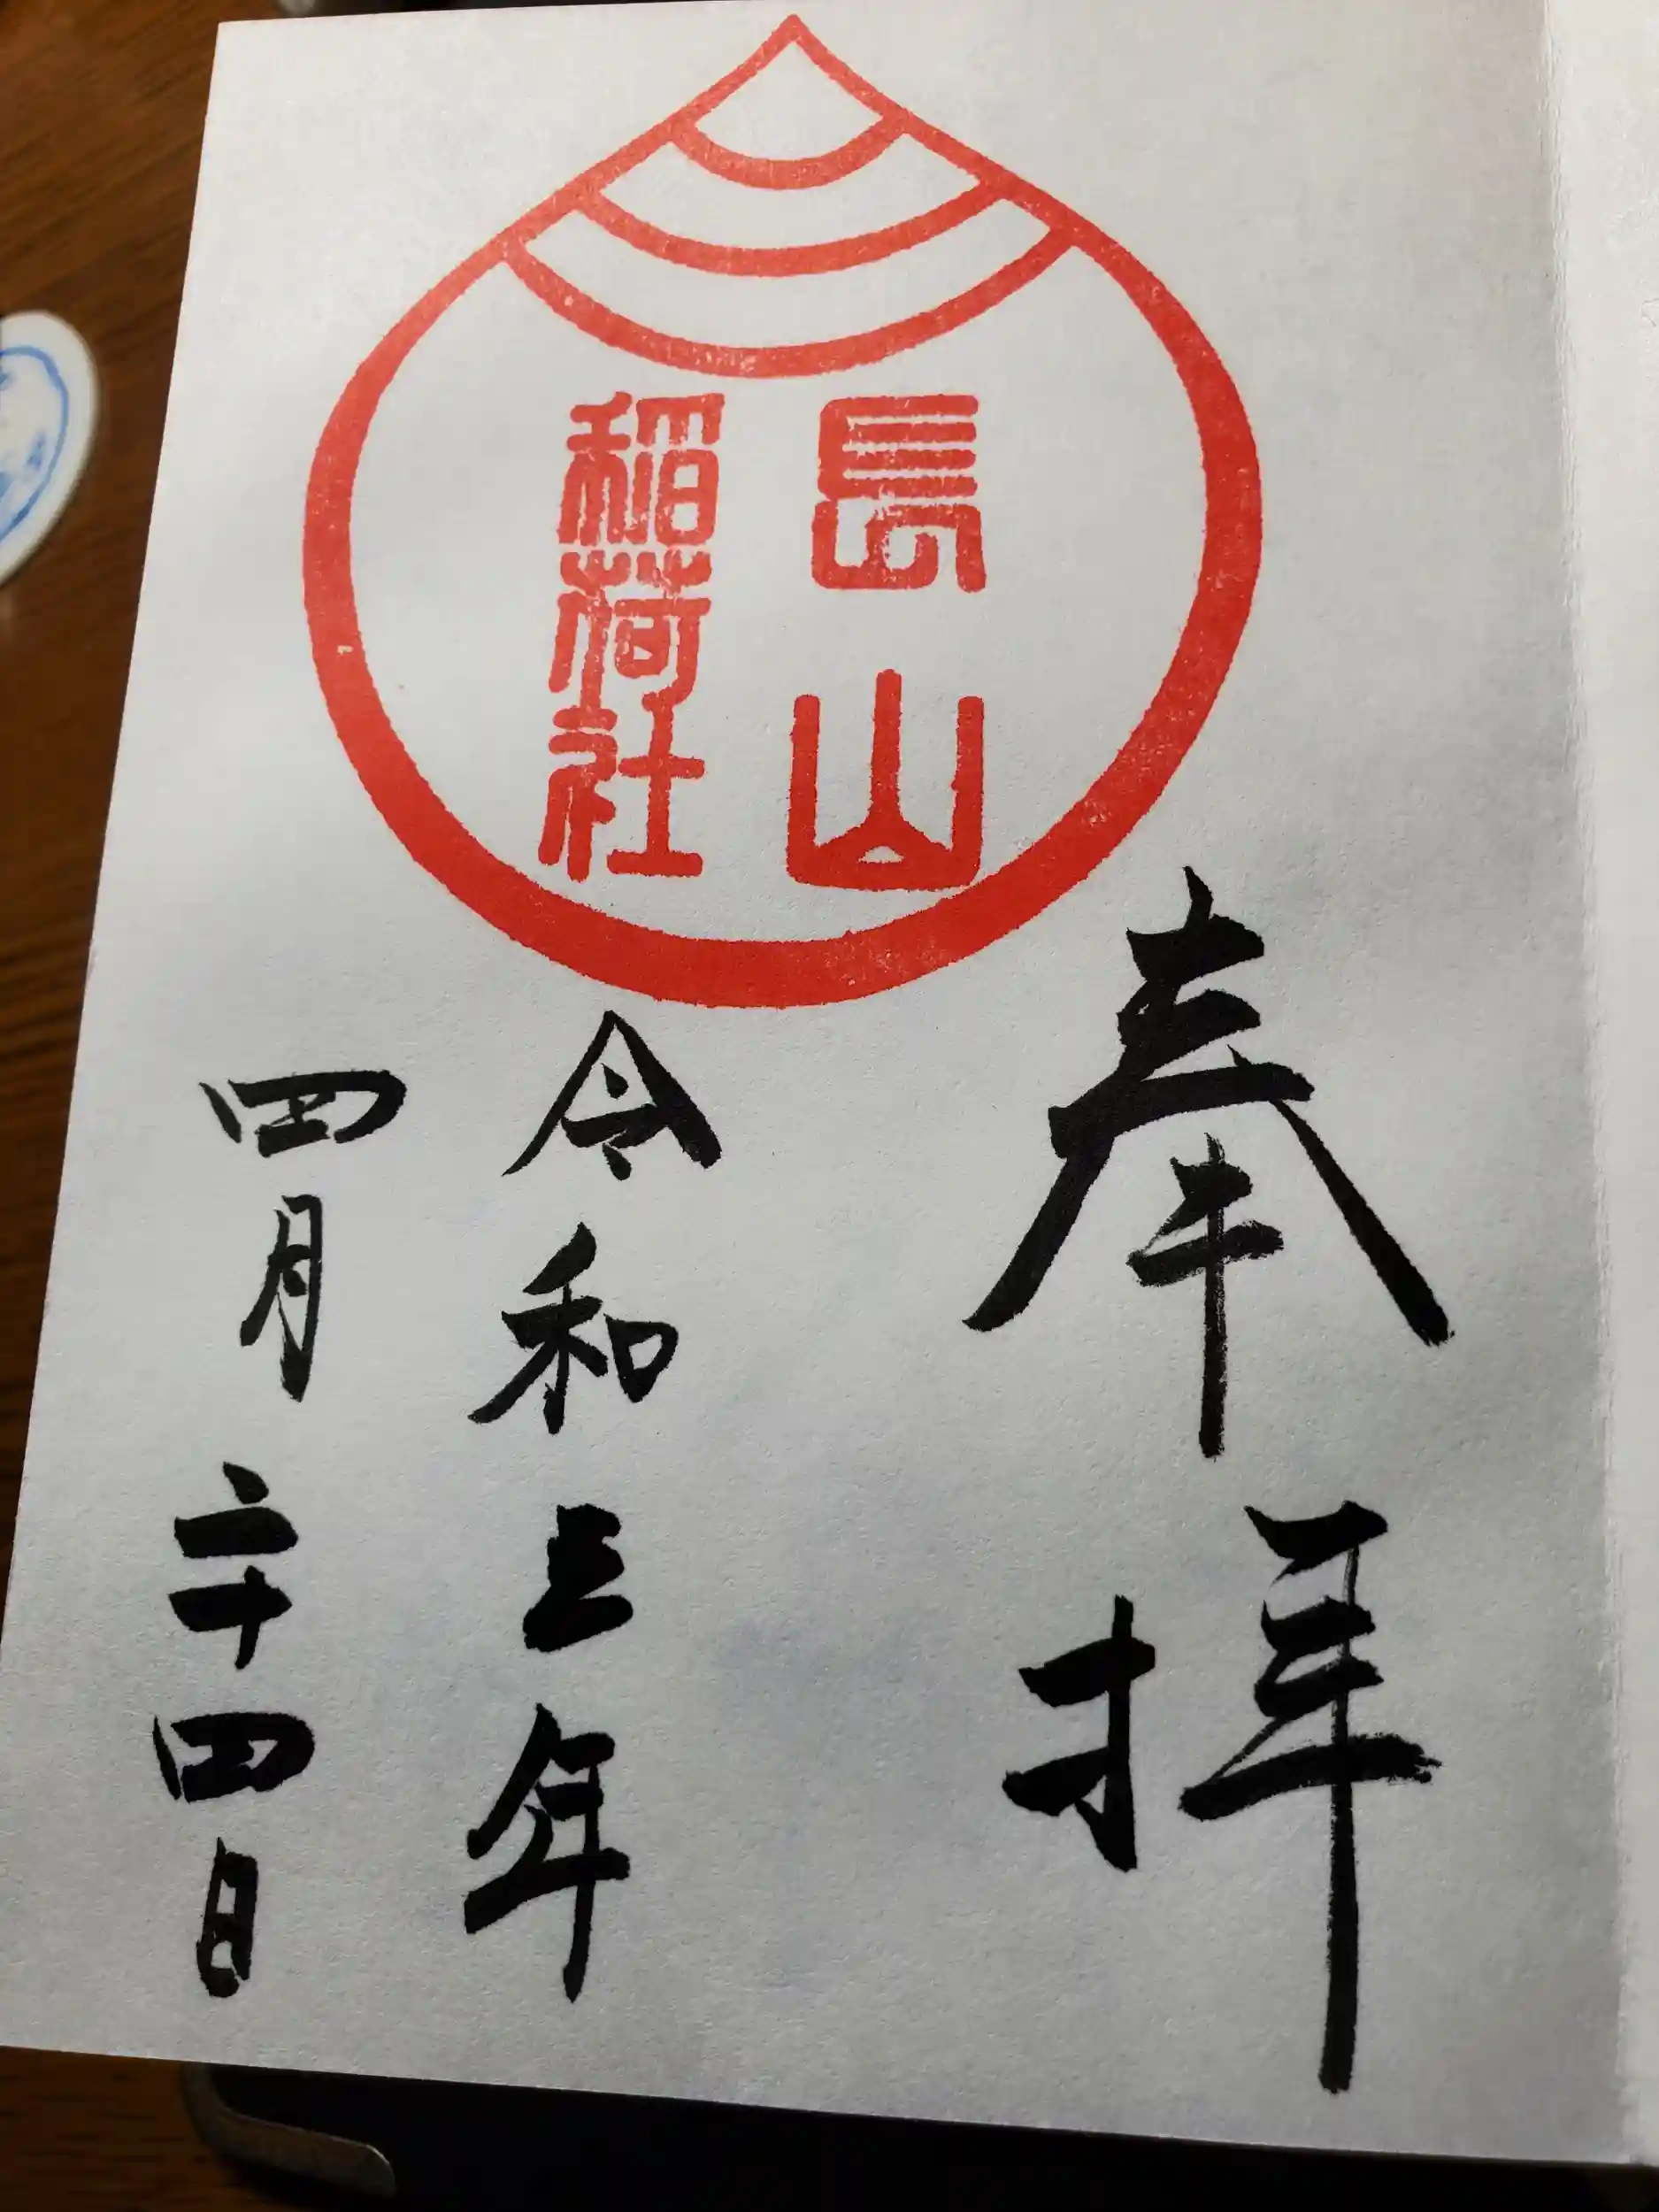 長山
稲荷社
奉拝
令和三年
四月二十四日